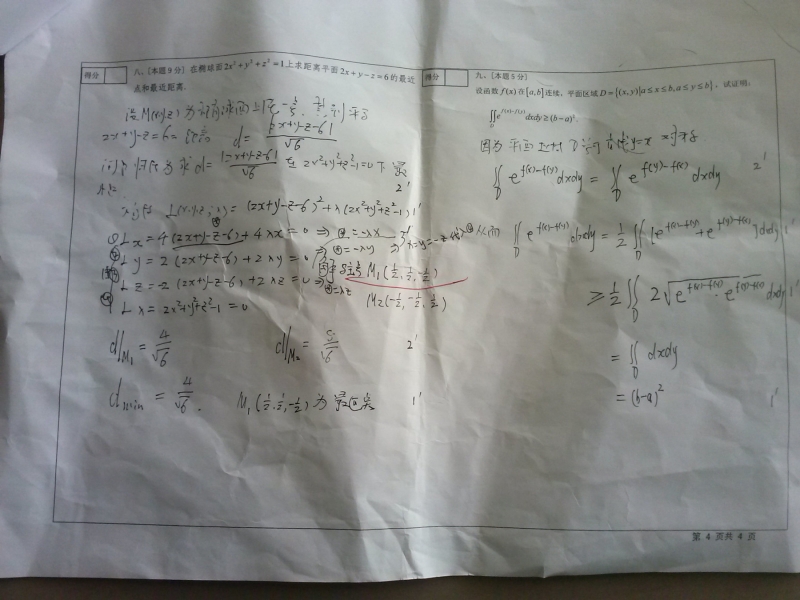 得分
八、[本题9分] 在椭球面2x²+y²+z²=1上求距离平面2x+y−z=6的最近
点和最近距离.
设 M(x,y,z) 为
2x+y−z=6 距离 d= |2x+y−z−6| / √6
d= |2x+y−z−6| / √6 在 2x²+y²+z²−1=0 下
2'
(2x+y−z−6)²+λ(2x²+y²+z²−1) 1'
① Lx=4(2x+y−z−6)+4λx=0 ⇒
Ly=2(2x+y−z−6)+2λy=0 ⇒
Lz=−2(2x+y−z−6)+2λz=0 ⇒
Lλ=2x²+y²+z²−1=0
M₁(½,½,−½)
M₂(−½,−½,½)
d|M₁=4/√6 d|M₂=8/√6 2'
dmin=4/√6. M₁(½,½,−½)为最近点 1'
得分
九、[本题5分]
设函数f(x)在[a,b]连续, 平面区域D={(x,y)|a≤x≤b,a≤y≤b}, 试证明:
∬_D e^{f(x)−f(y)}dxdy≥(b−a)².
因为 y=x 对称
∬_D e^{f(x)−f(y)}dxdy=∬_D e^{f(y)−f(x)}dxdy 2'
从而 ∬_D e^{f(x)−f(y)}dxdy=½∬_D[e^{f(x)−f(y)}+e^{f(y)−f(x)}]dxdy 1'
≥½∬_D 2√(e^{f(x)−f(y)}·e^{f(y)−f(x)})dxdy 1'
=∬_D dxdy
=(b−a)² 1'
第 4 页共 4 页